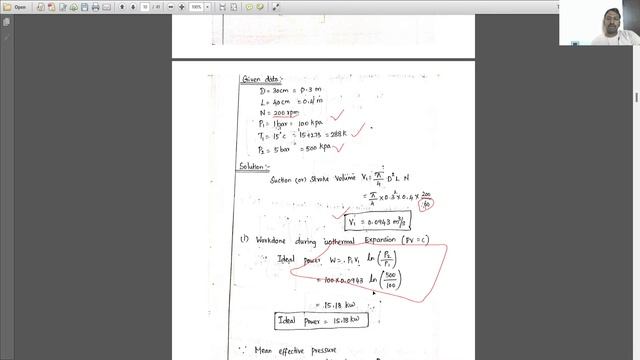 Open
10 / 41
100%
Given data:-
D = 30cm = 0.3 m
L = 40cm = 0.4 m
N = 200 rpm
P₁ = 1 bar = 100 kpa
T₁ = 15°c = 15+273 = 288 k
P₂ = 5 bar = 500 kpa
Solution:-
Suction (or) Stroke Volume V₁ = π/4 D² L N
= π/4 × 0.3² × 0.4 × 200/60
V₁ = 0.0943 m³/s
(1) Workdone during isothermal Expansion (PV = C)
Ideal power W = P₁V₁ ln (P₂/P₁)
= 100 × 0.0943 ln (500/100)
= 15.18 kw
Ideal power = 15.18 kw
∵ Mean effective pressure